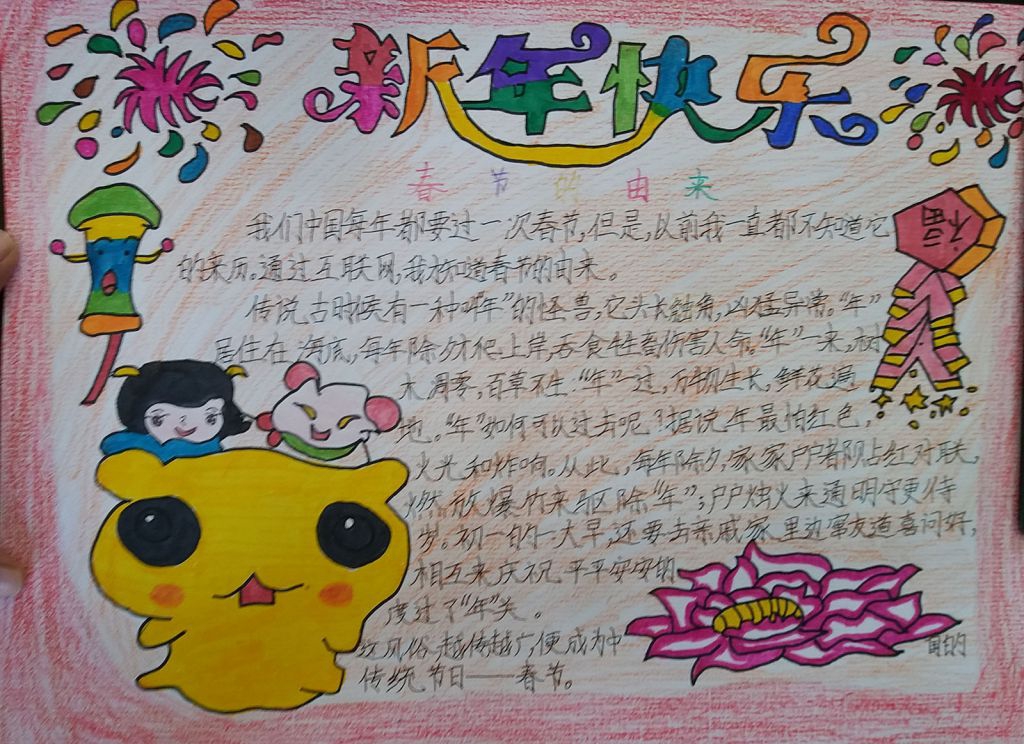 新年快乐
春节的由来
福
我们中国每年都要过一次春节,但是,以前我一直都不知道它
的来历,通过互联网,我才知道春节的由来。
传说,古时候有一种叫“年”的怪兽,它头长触角,凶猛异常。“年”
居住在海底,每年除夕才爬上岸,吞食牲畜伤害人命。“年”一来,树
木凋零,百草不生;“年”一过,万物生长,鲜花遍
地。“年”如何可以过去呢?据说年最怕红色,
火光和炸响。从此,每年除夕,家家户户都贴红对联,
燃放爆竹来驱除“年”;户户烛火来通明守更待
岁。初一的一大早,还要去亲戚家里边窜友道喜问好,
相互来庆祝平平安安的
度过了“年”关。
这风俗越传越广,便成为中
国的
传统节日——春节。